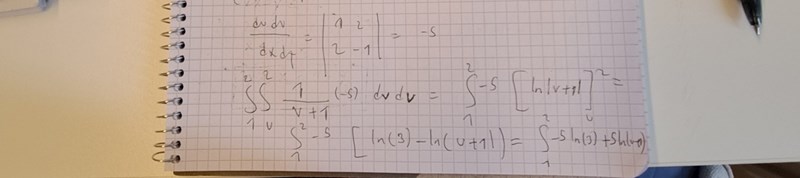 du dv / dx dy = | 1 2 | = -5
| 2 -1 |
∫₁² ∫ᵤ² 1/(v+1) (-5) dv du = ∫₁² -5 [ln|v+1|]ᵤ² =
∫₁² -5 [ln(3) - ln(u+1)] = ∫₁² -5 ln(3) + 5 ln(u+1)